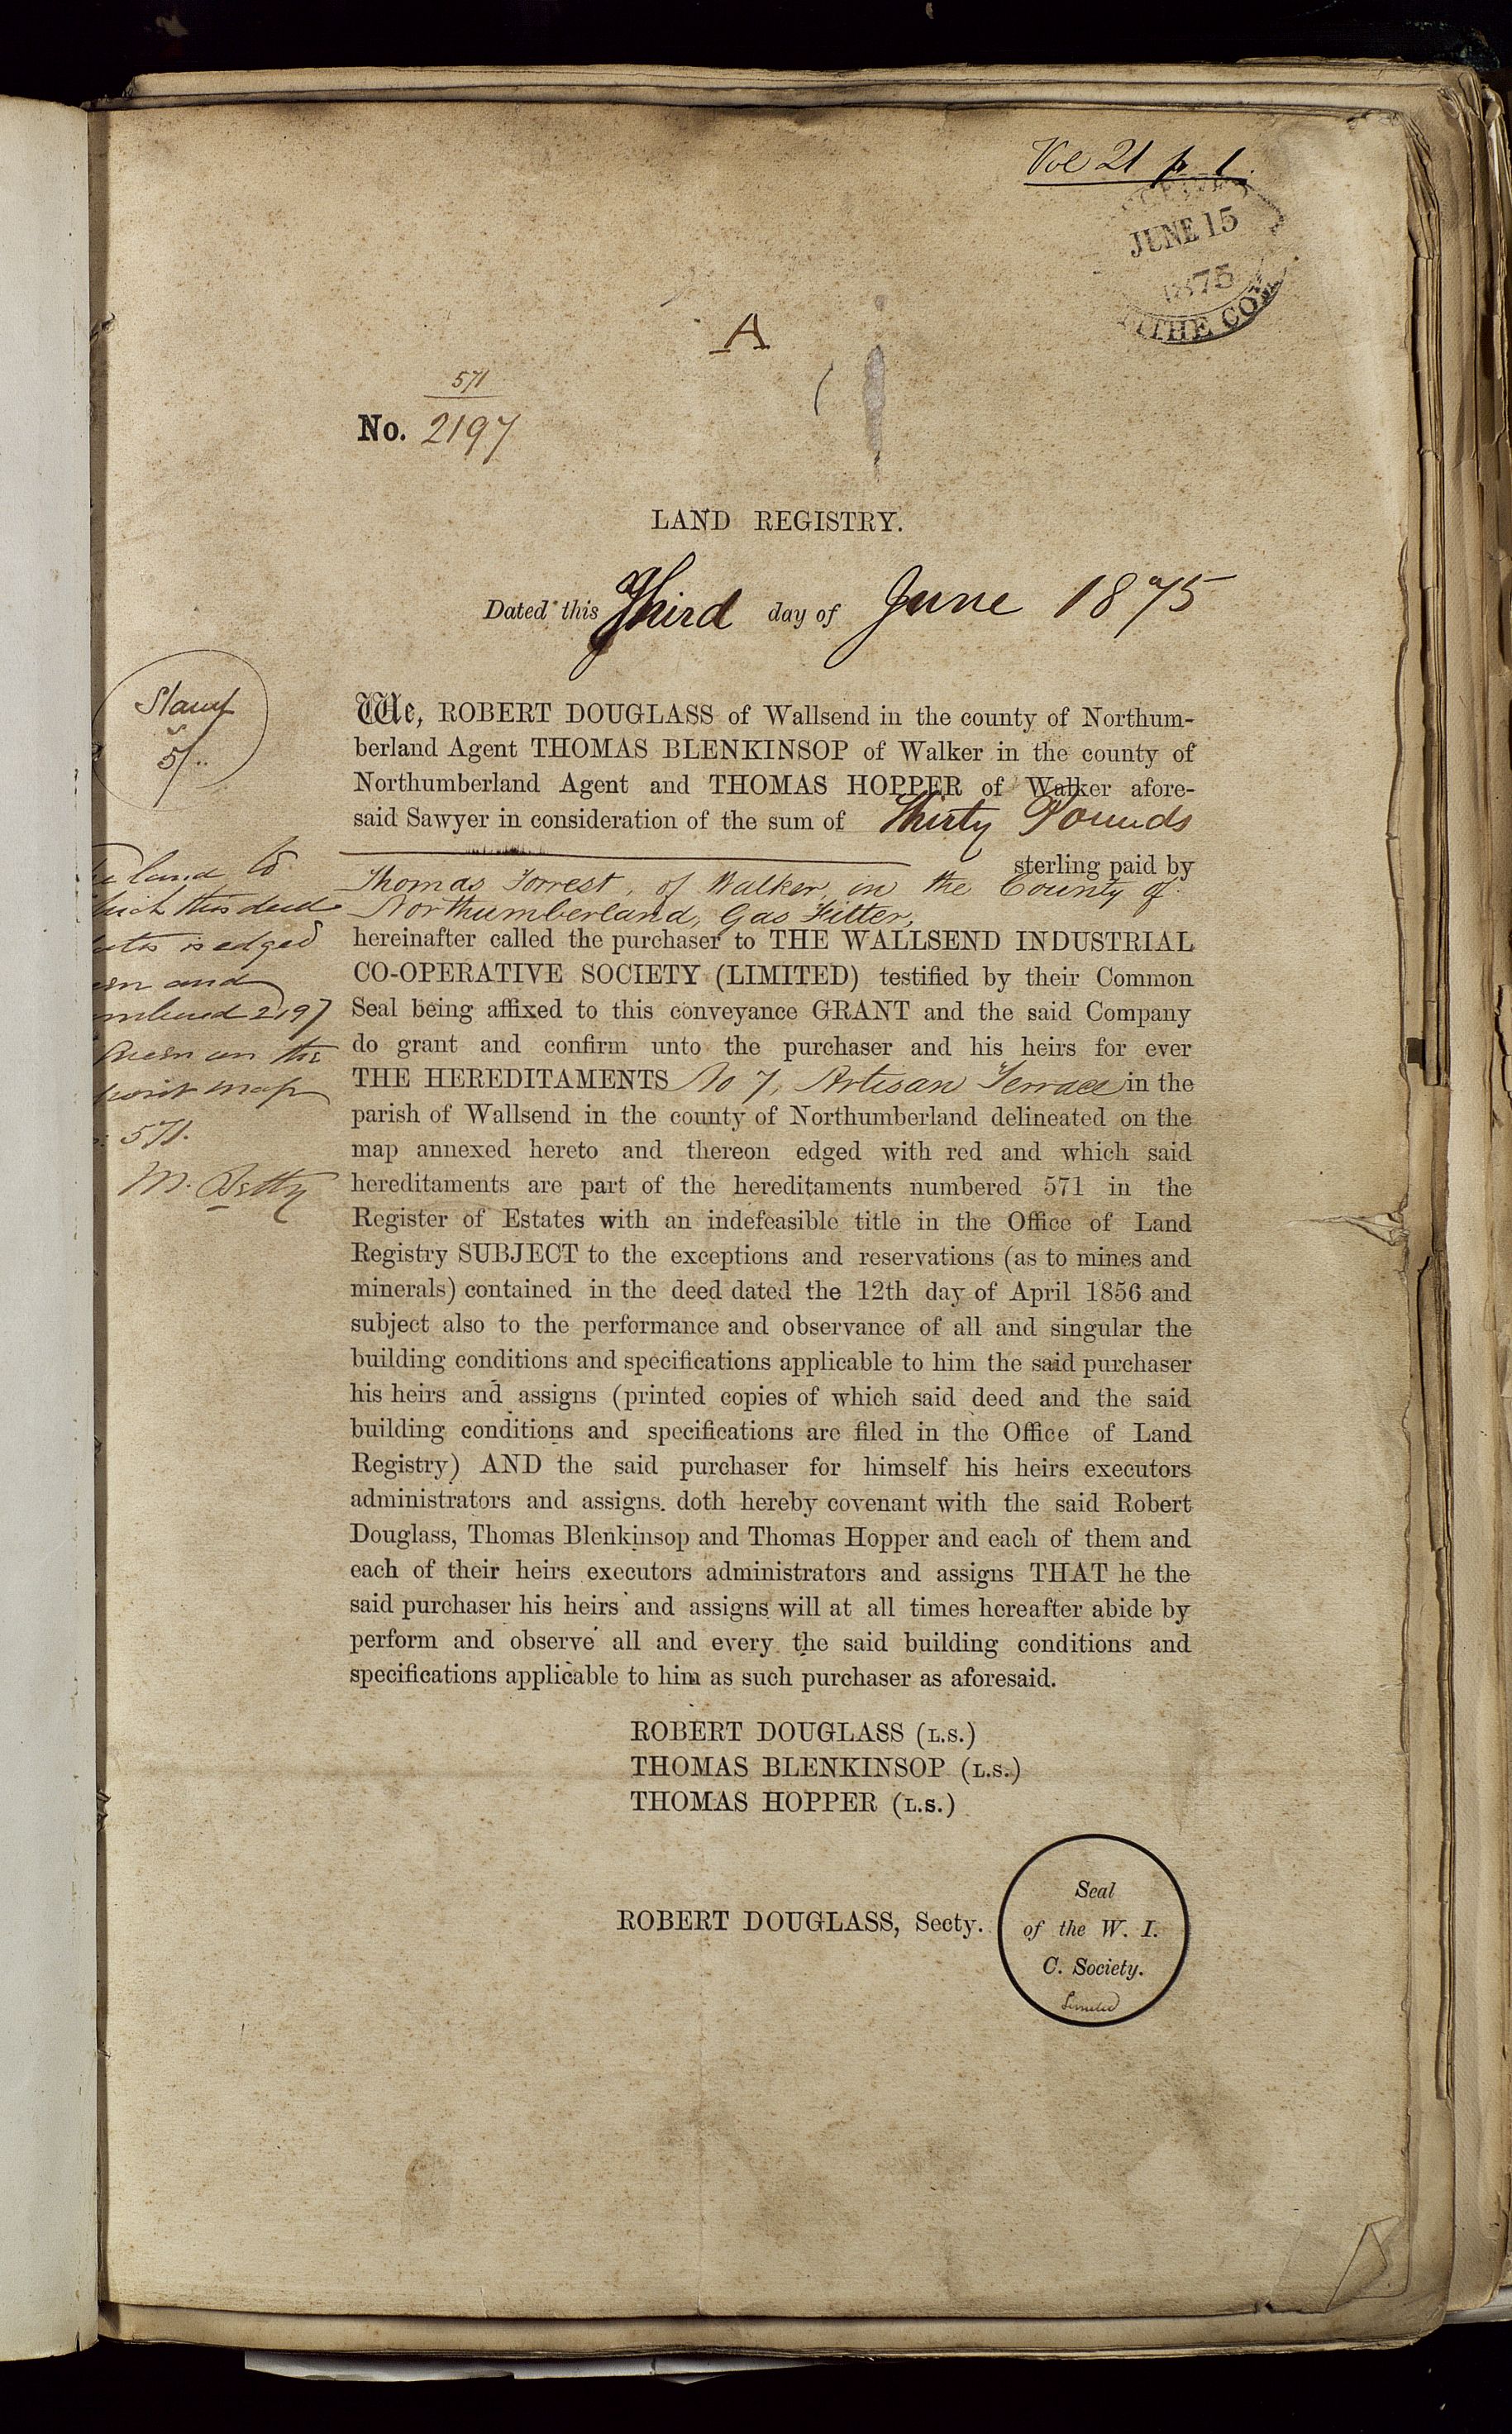 Vol 21 p 1.
JUNE 15
1875
THE CO
A
571
No. 2197
LAND REGISTRY.
Dated this Third day of June 1875
Stamp
5/..
We, ROBERT DOUGLASS of Wallsend in the county of Northum-
berland Agent THOMAS BLENKINSOP of Walker in the county of
Northumberland Agent and THOMAS HOPPER of Walker afore-
said Sawyer in consideration of the sum of Thirty Pounds
sterling paid by
Thomas Forrest, of Walker, in the County of
Northumberland, Gas Fitter,
hereinafter called the purchaser to THE WALLSEND INDUSTRIAL
CO-OPERATIVE SOCIETY (LIMITED) testified by their Common
Seal being affixed to this conveyance GRANT and the said Company
do grant and confirm unto the purchaser and his heirs for ever
THE HEREDITAMENTS No 7, Artisan Terrace in the
parish of Wallsend in the county of Northumberland delineated on the
map annexed hereto and thereon edged with red and which said
hereditaments are part of the hereditaments numbered 571 in the
Register of Estates with an indefeasible title in the Office of Land
Registry SUBJECT to the exceptions and reservations (as to mines and
minerals) contained in the deed dated the 12th day of April 1856 and
subject also to the performance and observance of all and singular the
building conditions and specifications applicable to him the said purchaser
his heirs and assigns (printed copies of which said deed and the said
building conditions and specifications are filed in the Office of Land
Registry) AND the said purchaser for himself his heirs executors
administrators and assigns. doth hereby covenant with the said Robert
Douglass, Thomas Blenkinsop and Thomas Hopper and each of them and
each of their heirs executors administrators and assigns THAT he the
said purchaser his heirs and assigns will at all times hereafter abide by
perform and observe all and every the said building conditions and
specifications applicable to him as such purchaser as aforesaid.
land to
this deed
is edged
and
2197
on the
map
571.
ROBERT DOUGLASS (L.S.)
THOMAS BLENKINSOP (L.S.)
THOMAS HOPPER (L.S.)
ROBERT DOUGLASS, Secty.
Seal
of the W. I.
C. Society.
Limited